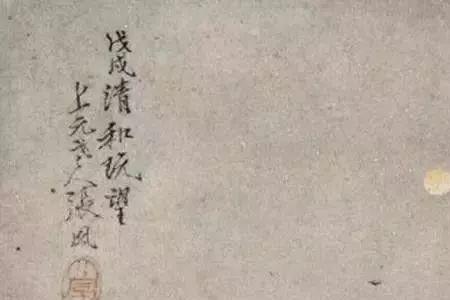 戊戌清和既望
上元老人張風